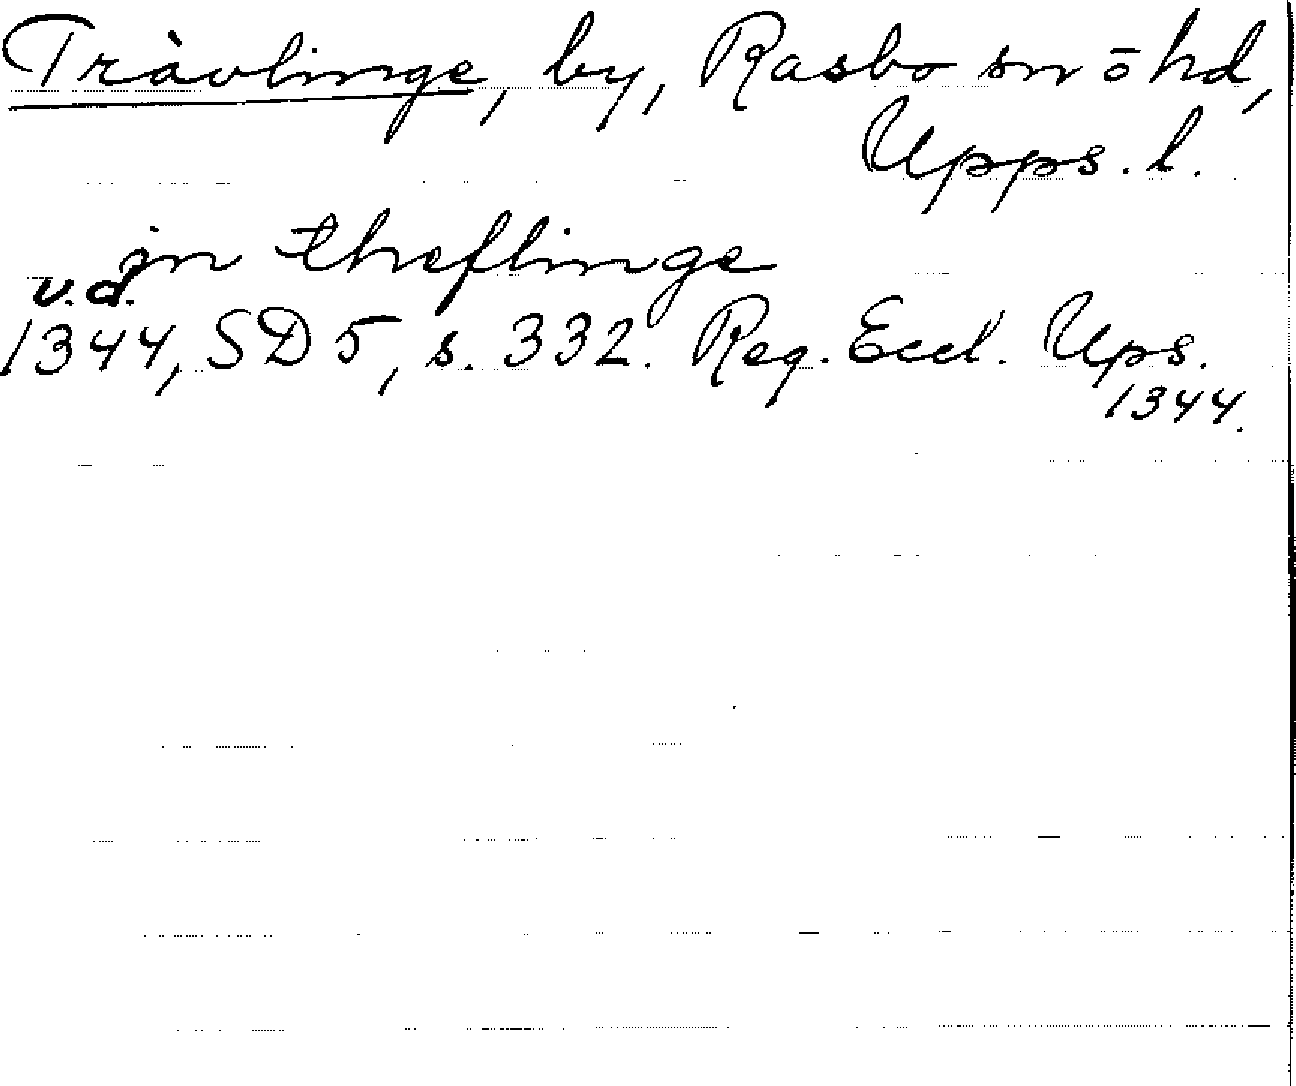 Tråvlinge, by, Rasbo sn o hd,
Upps. l.
jn threflinge
v.d.
1344, SD 5, s. 332. Reg. Eccl. Ups.
1344.